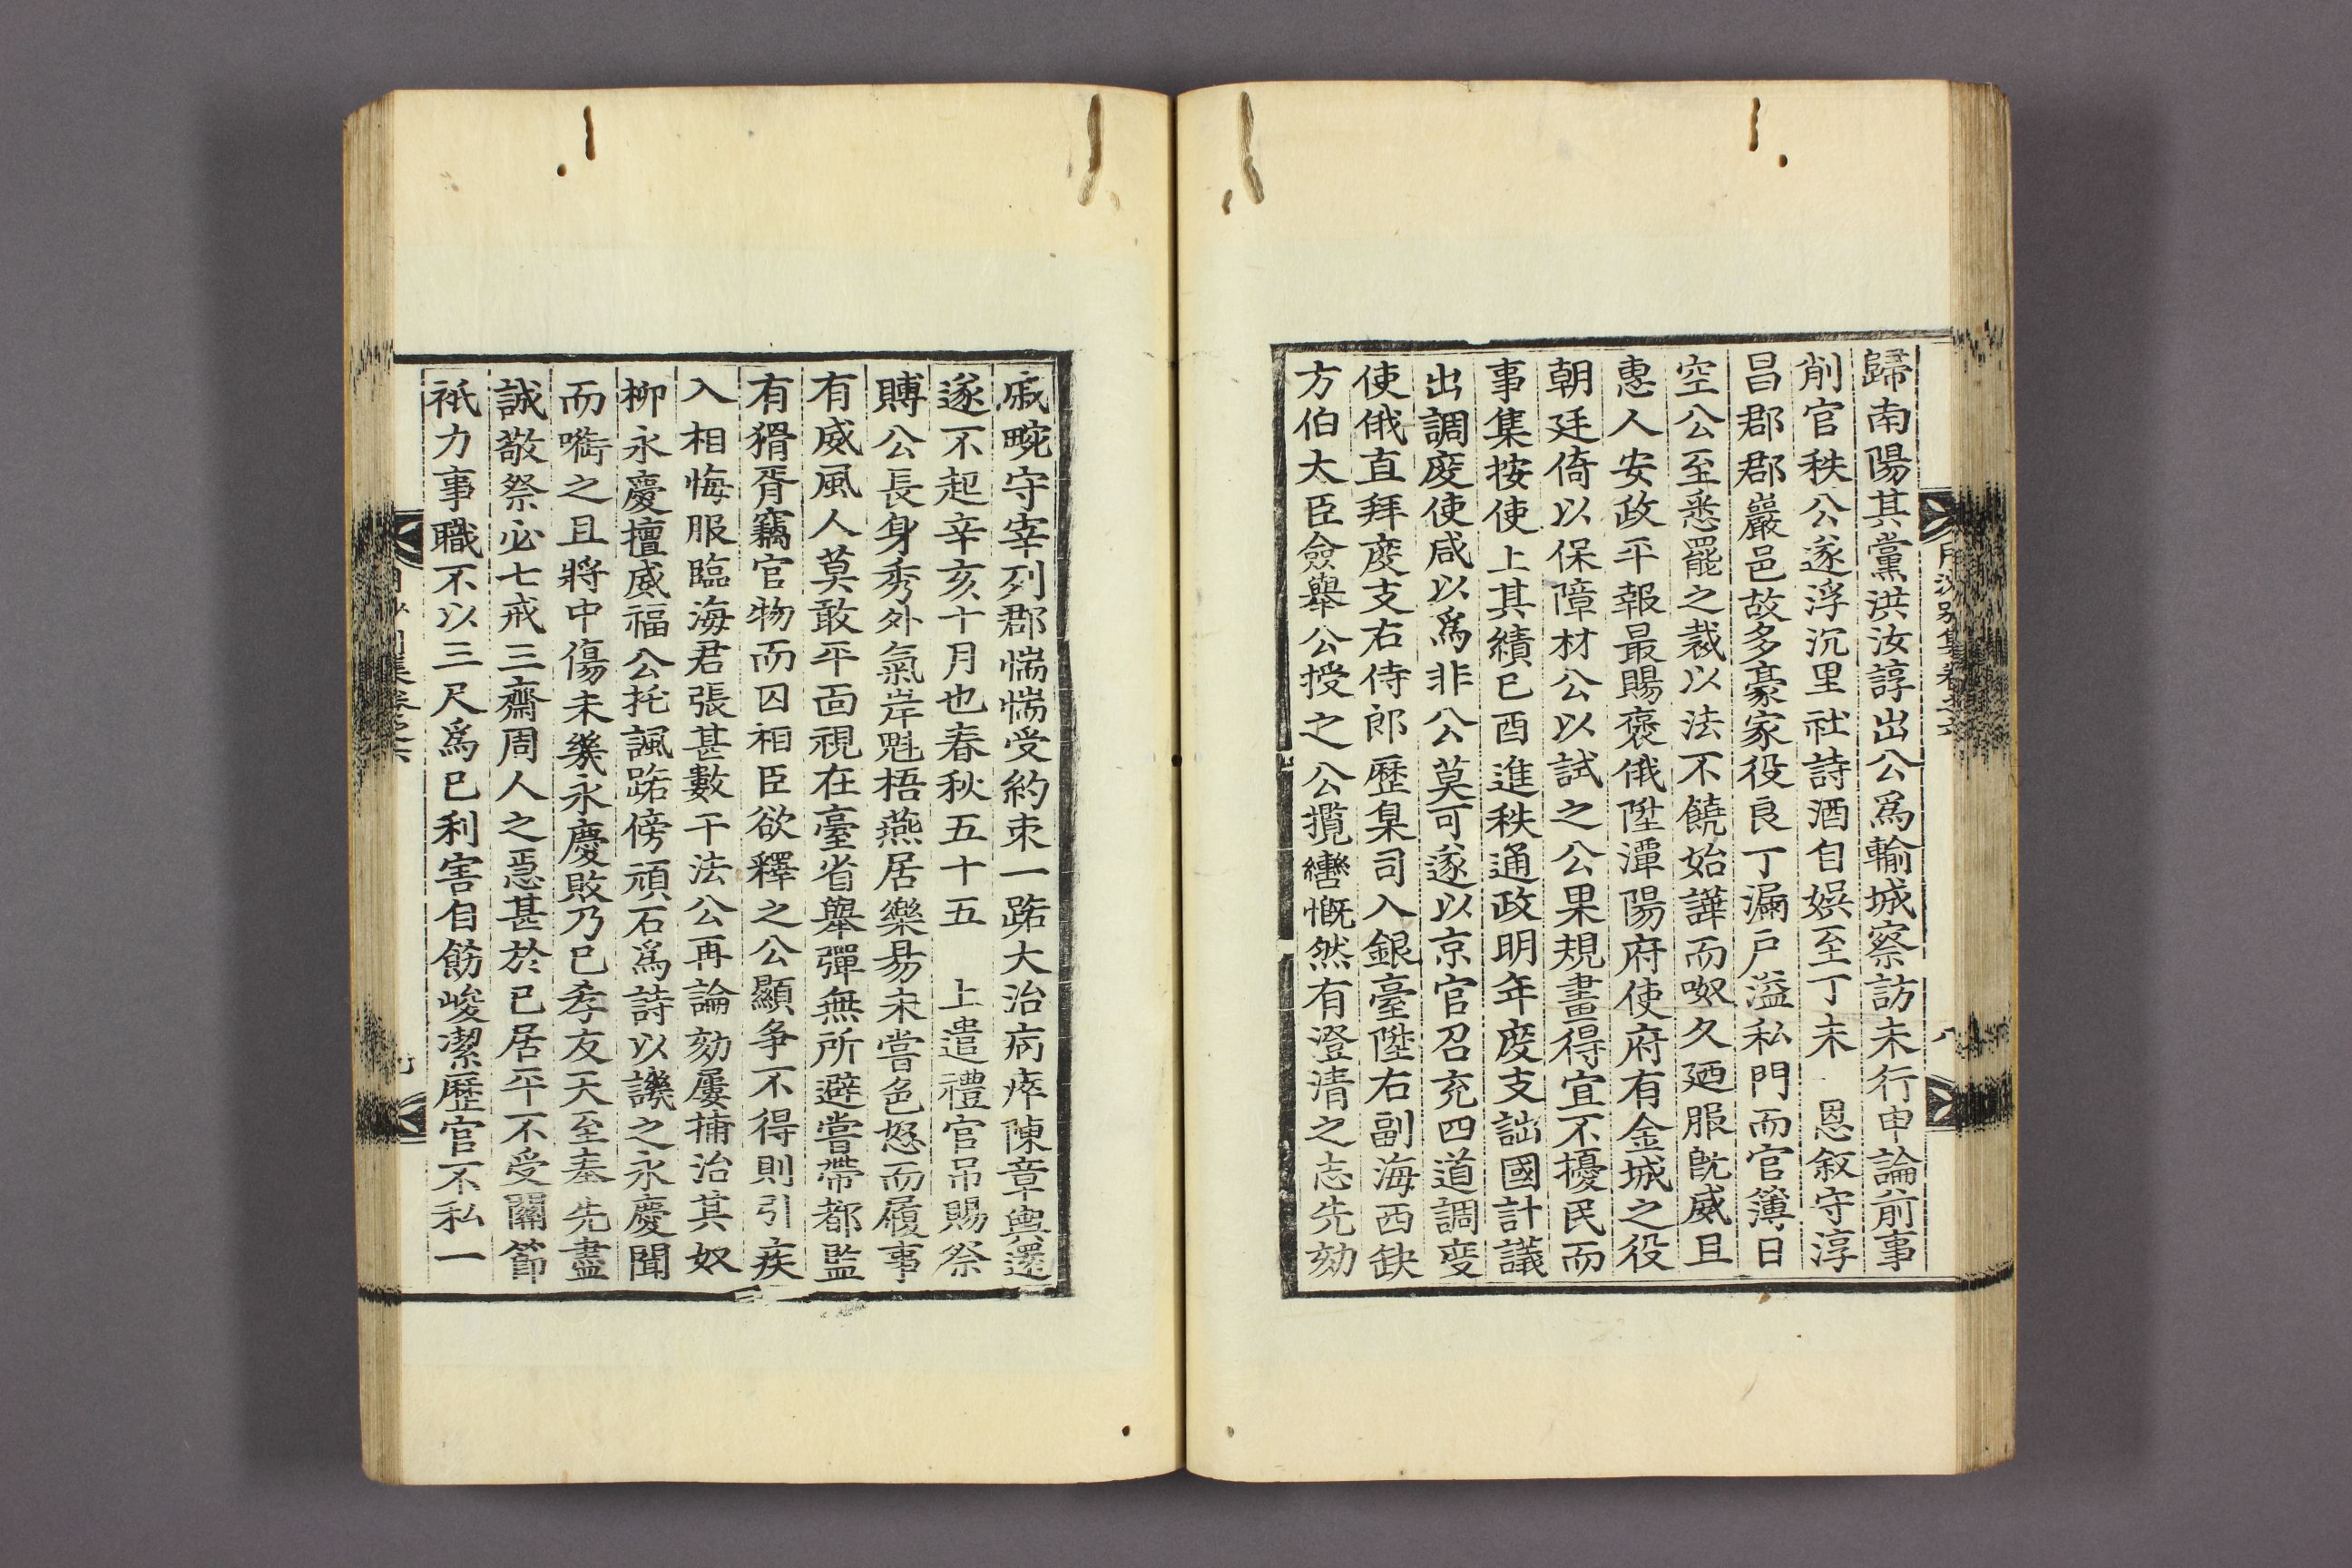 歸南陽其黨洪汝諄出公爲輸城察訪未行申論前事
削官秩公遂浮沉里社詩酒自娛至丁未 恩叙守淳
昌郡郡巖邑故多豪家役良丁漏戶溢私門而官簿日
空公至悉罷之裁以法不饒始譁而呶久廼服旣威且
惠人安政平報最賜褒俄陞潭陽府使府有金城之役
朝廷倚以保障材公以試之公果規畫得宜不擾民而
事集按使上其績已酉進秩通政明年度支詘國計議
出調度使咸以爲非公莫可遂以京官召充四道調度
使俄直拜度支右侍郎歷臬司入銀臺陞右副海西缺
方伯大臣僉舉公授之公攬轡慨然有澄清之志先劾
戚畹守宰列郡惴惴受約束一路大治病瘁陳章輿還
遂不起辛亥十月也春秋五十五 上遣禮官吊賜祭
賻公長身秀外氣岸魁梧燕居樂易未嘗色怒而履事
有威風人莫敢平面視在臺省舉彈無所避嘗帶都監
有猾胥竊官物而囚相臣欲釋之公顯争不得則引疾
入相悔服臨海君張甚數干法公再論劾屢捕治其奴
柳永慶擅威福公托諷路傍頑石爲詩以譏之永慶聞
而嗛之且將中傷未幾永慶敗乃已孝友天至奉先盡
誠敬祭必七戒三齋周人之急甚於己居平不受關節
祇力事職不以三尺爲已利害自飭峻潔歷官不私一
月沙別集卷之六
八